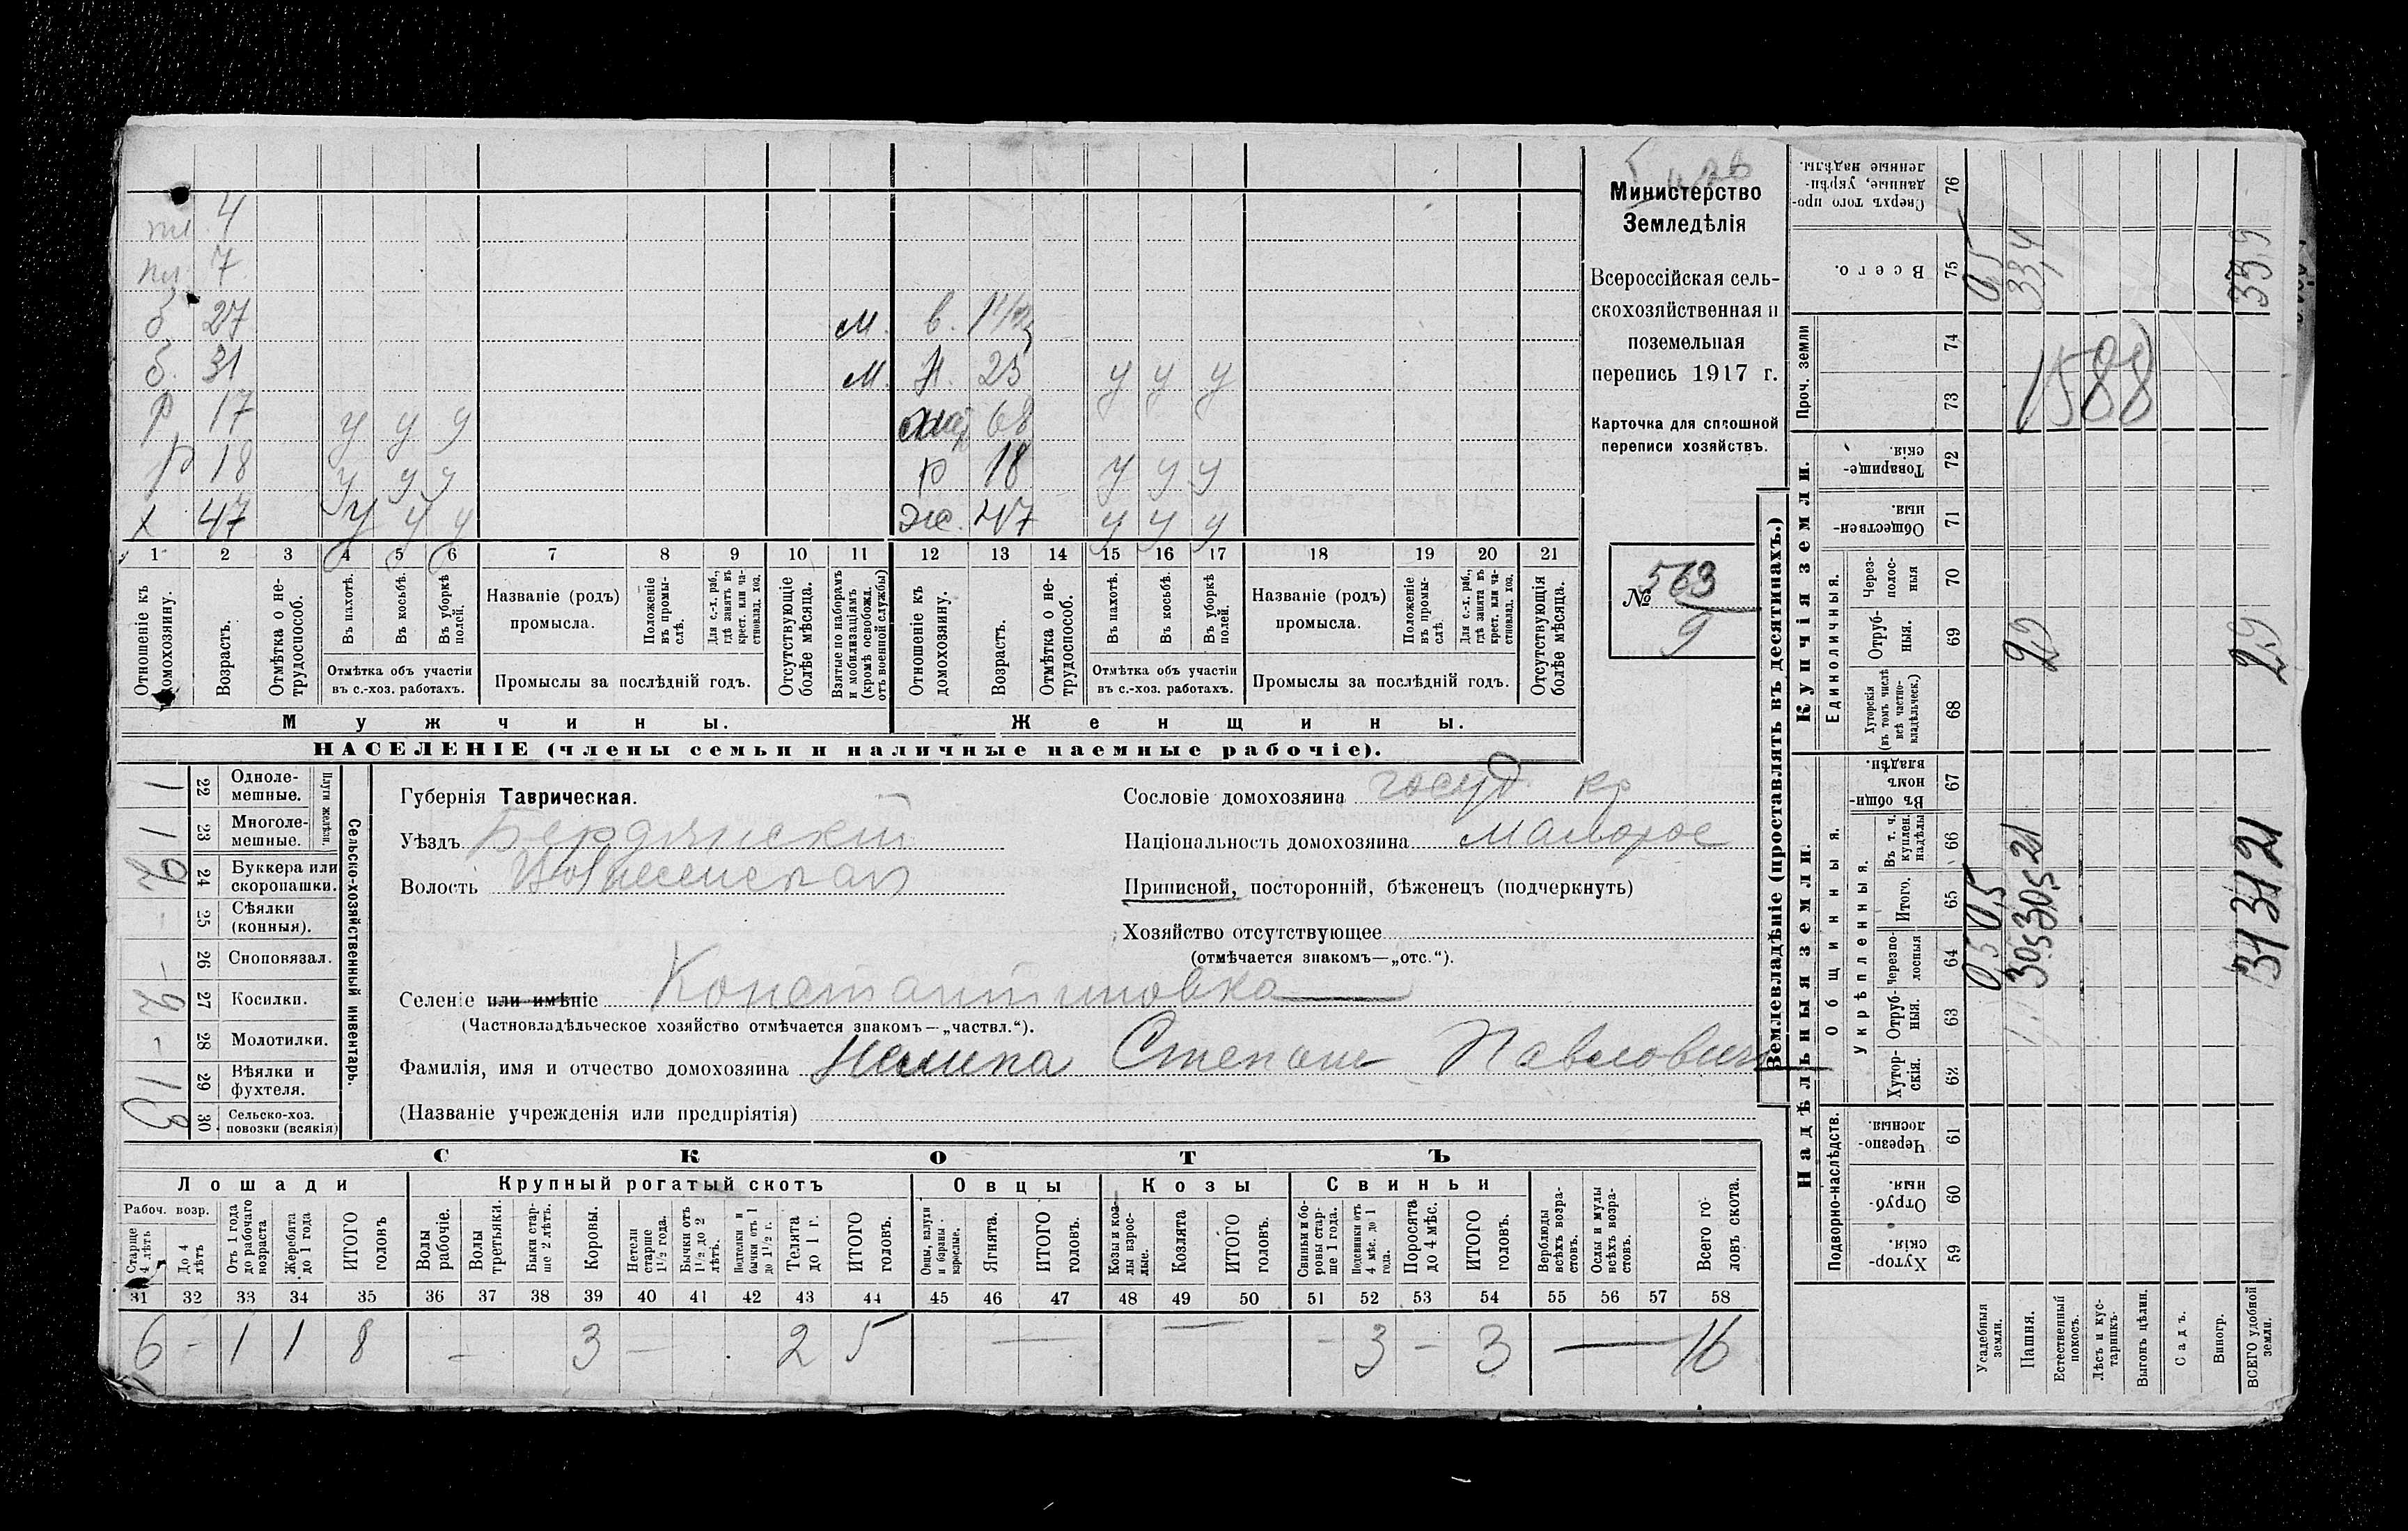 пл. 4
пл. 7
б. 27 М. в. 1 1/2
б. 31 М. Н. 23 у у у
р 17 у у у мат 68
р 18 у у у р 18 у у у
х 47 у у у же. 47 у у у
1 2 3 4 5 6 7 8 9 10 11 12 13 14 15 16 17 18 19 20 21
Отношеніе къ домохозяину.
Возрастъ.
Отмѣтка о нетрудоспособ.
Въ пахотѣ.
Въ косьбѣ.
Въ уборкѣ полей.
Отмѣтка объ участіи
въ с.-хоз. работахъ.
Названіе (родъ)
промысла.
Положеніе въ промыслѣ.
Для с.-х. раб., гдѣ занятъ въ крест. или частновлад. хоз.
Промыслы за послѣдній годъ.
Отсутствующіе болѣе мѣсяца.
Взятые по наборамъ и мобилизаціямъ (кромѣ освобожд. отъ военной службы)
Отношеніе къ домохозяину.
Возрастъ.
Отмѣтка о нетрудоспособ.
Въ пахотѣ.
Въ косьбѣ.
Въ уборкѣ полей.
Отмѣтка объ участіи
въ с.-хоз. работахъ.
Названіе (родъ)
промысла.
Положеніе въ промыслѣ.
Для с.-х. раб., гдѣ занята въ крест. или частновлад. хоз.
Промыслы за послѣдній годъ.
Отсутствующія болѣе мѣсяца.
Мужчины. Женщины.
НАСЕЛЕНІЕ (члены семьи и наличные наемные рабочіе).
Министерство
Земледѣлія
Всероссійская сель-
скохозяйственная и
поземельная
перепись 1917 г.
Карточка для сплошной
переписи хозяйствъ.
№ 563
9
Сельско-хозяйственный инвентарь.
Плуги желѣзн.
1 22 Одноле-
мешные.
1 23 Многоле-
мешные.
2 24 Буккера или
скоропашки.
- 25 Сѣялки
(конныя).
- 26 Сноповязал.
2 27 Косилки.
- 28 Молотилки.
1 29 Вѣялки и
фухтеля.
3 30 Сельско-хоз.
повозки (всякія)
Губернія Таврическая.
Уѣздъ Бердянскій
Волость Вознесенская
Сословіе домохозяина госуд. кр
Національность домохозяина малорос
Приписной, посторонній, бѣженецъ (подчеркнуть)
Хозяйство отсутствующее
(отмѣчается знакомъ—„отс.“).
Селеніе или имѣніе Константиновка
(Частновладѣльческое хозяйство отмѣчается знакомъ—„частвл.“).
Фамилія, имя и отчество домохозяина Степан Павлович
(Названіе учрежденія или предпріятія)
СКОТЪ
Лошади Крупный рогатый скотъ Овцы Козы Свиньи
Рабоч. возр.
Старше 4 лѣтъ
До 4 лѣтъ
Отъ 1 года до рабочаго возраста
Жеребята до 1 года
ИТОГО головъ
Волы рабочіе.
Волы третьяки.
Быки старше 2 лѣтъ.
Коровы.
Нетели старше 1 1/2 года.
Бычки отъ 1 1/2 до 2 лѣтъ.
Подтелки и бычки отъ 1 до 1 1/2 г.
Телята до 1 г.
ИТОГО головъ.
Овцы, валухи и бараны взрослые.
Ягнята.
ИТОГО головъ.
Козы и козлы взрослые.
Козлята
ИТОГО головъ.
Свиньи и боровы старше 1 года.
Подсвинки отъ 4 мѣс. до 1 года.
Поросята до 4 мѣс.
ИТОГО головъ.
Верблюды всѣхъ возрастовъ.
Ослы и мулы всѣхъ возрастовъ.
Всего головъ скота.
31 32 33 34 35 36 37 38 39 40 41 42 43 44 45 46 47 48 49 50 51 52 53 54 55 56 57 58
6 - 1 1 8 - 3 - 2 5 — — - 3 - 3 — 16
Землевладѣніе (проставлять въ десятинахъ.)
Надѣльныя земли. Купчія земли. Проч. земли
Подворно-наслѣдств. Общинныя. Укрѣпленныя. Единоличныя.
Хуторскія. 59
Отрубныя. 60
Черезполосныя. 61
Хуторскія. 62
Отрубныя. 63
Черезполосныя 64
Итого. 65
Въ т. ч. куплен. надѣлы 66
Въ общинномъ владѣн. 67
Хуторскія (въ томъ числѣ всѣ частновладѣльческ.) 68
Отрубныя. 69
Черезполосныя 70
Общественныя. 71
Товарищескія. 72
73
74
Всего. 75
Сверхъ того проданные, укрѣпленные надѣлы. 76
Усадебныя земли. 0,5 0,5 0,5
Пашня. 30,5 30,5 21 2,9 33,4
Естественный покосъ.
Лѣсъ и кустарникъ.
Выгонъ цѣлин.
Садъ.
Виногр.
ВСЕГО удобной земли. 31 31 21 2,9 33,9
1588